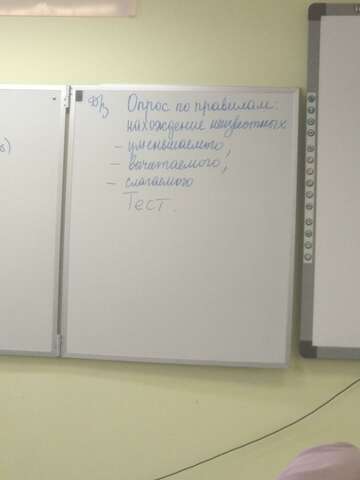 Д/з Опрос по правилам:
нахождение неизвестных
- уменьшаемого,
- вычитаемого,
- слагаемого
Тест.